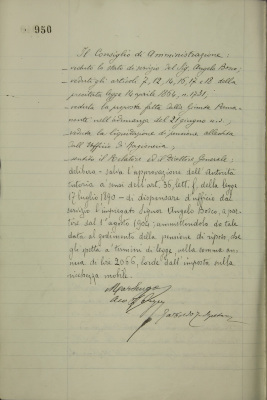 950
Il Consiglio di Amministrazione,
veduto lo stato di servizio del Sig. Angelo Bosco;
veduti gli articoli 7, 12, 14, 15, 17 e 18 della
legge 14 aprile 1864, n. 1731;
veduta la proposta fatta dalla Giunta Perma-
nente nell'adunanza del 21 giugno u.s.;
veduta la liquidazione di pensione allestita
dall'Ufficio di Ragioneria;
udito il Relatore ed il Direttore Generale;
delibera - salva l'approvazione dell'Autorità
tutoria a mai dell'art. 36, lett. f, della legge
17 luglio 1890 - di dispensare d'ufficio dal
servizio l'impiegato Signor Angelo Bosco, a par-
tire dal 1° agosto 1904, ammettendolo da tale
data al godimento della pensione di riposo, che
gli spetta a termini di legge, nella somma an-
nua di lire 2066, lorde dell'imposta sulla
ricchezza mobile.